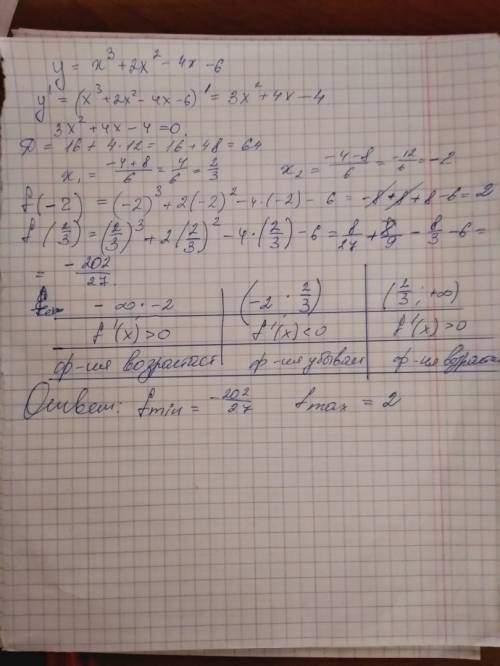 y = x³ + 2x² - 4x - 6
y' = (x³ + 2x² - 4x - 6)' = 3x² + 4x - 4
3x² + 4x - 4 = 0.
D = 16 + 4·12 = 16 + 48 = 64
x₁ = (-4+8)/6 = 4/6 = 2/3 x₂ = (-4-8)/6 = -12/6 = -2
f(-2) = (-2)³ + 2(-2)² - 4·(-2) - 6 = -8 + 8 + 8 - 6 = 2
f(2/3) = (2/3)³ + 2(2/3)² - 4·(2/3) - 6 = 8/27 + 8/9 - 8/3 - 6 =
= -202/27.
-∞; -2 (-2; 2/3) (2/3; +∞)
f'(x) > 0 f'(x) < 0 f'(x) > 0
ф-ия возрастает ф-ия убывает ф-ия возраста
Ответ: fmin = -202/27 fmax = 2